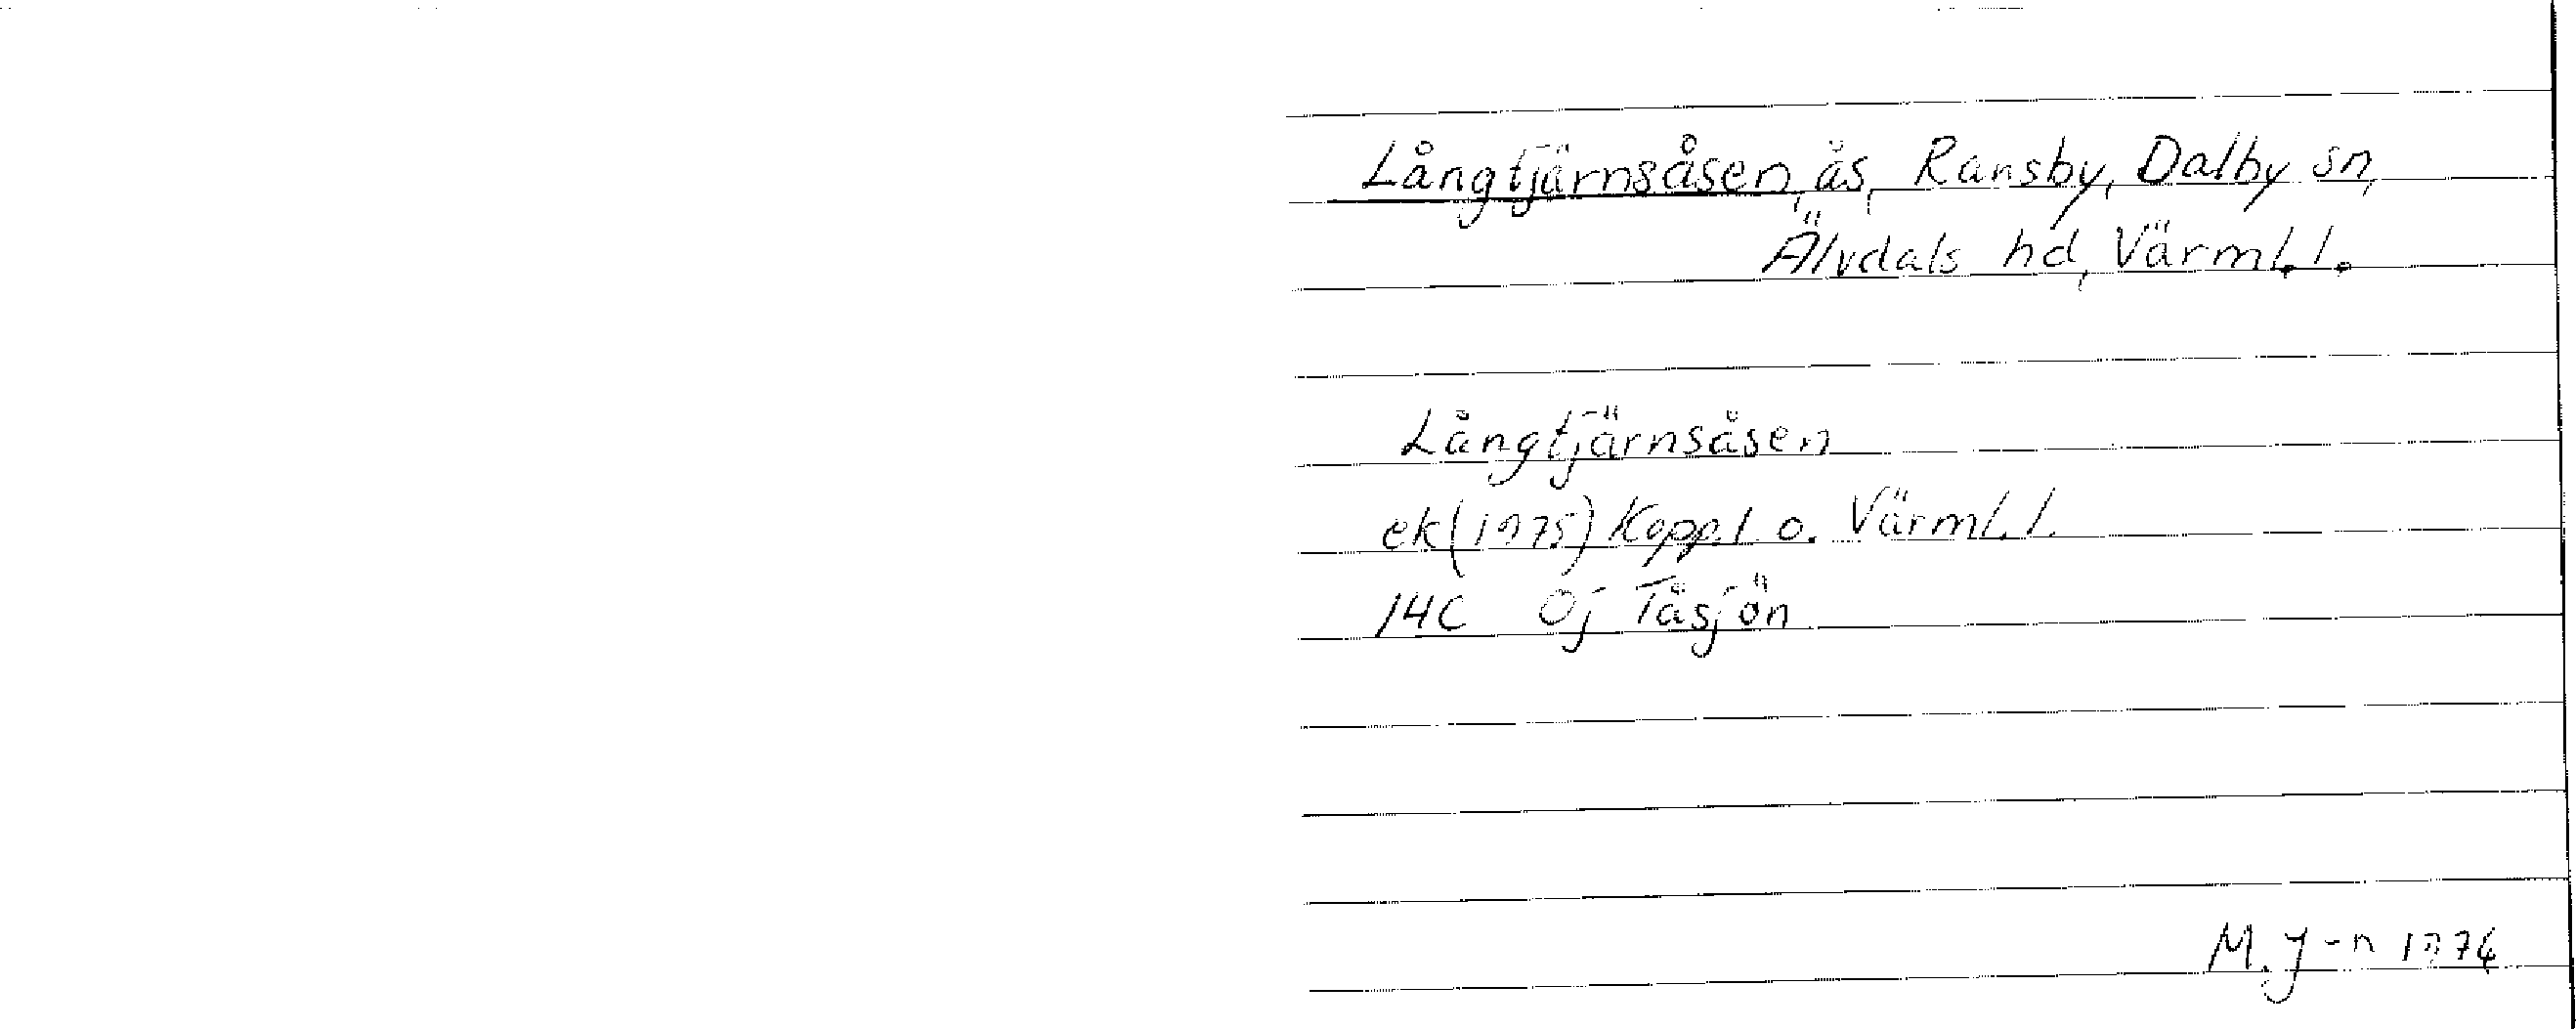 Långtjärnsåsen, ås, Ransby, Dalby sn,
Älvdals hd, Värml. l.
Långtjärnsåsen
ek (1975) Kopp.l o. Värml. l.
14C 0j Tåsjön
M. J-n 1976